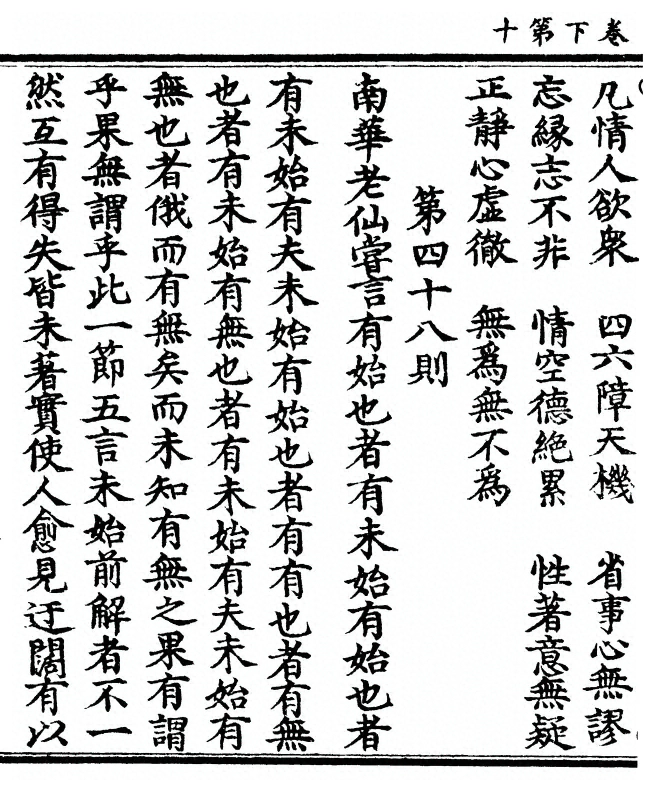 卷下第十
凡情人欲衆　四六障天機　省事心無謬
忘緣志不非　情空德絶累　性著意無疑
正靜心虛徹　無爲無不爲
第四十八則
南華老仙嘗言有始也者有未始有始也者
有未始有夫未始有始也者有有也者有無
也者有未始有無也者有未始有夫未始有
無也者俄而有無矣而未知有無之果有謂
乎果無謂乎此一節五言未始前解者不一
然互有得失皆未著實使人愈見迂闊有以